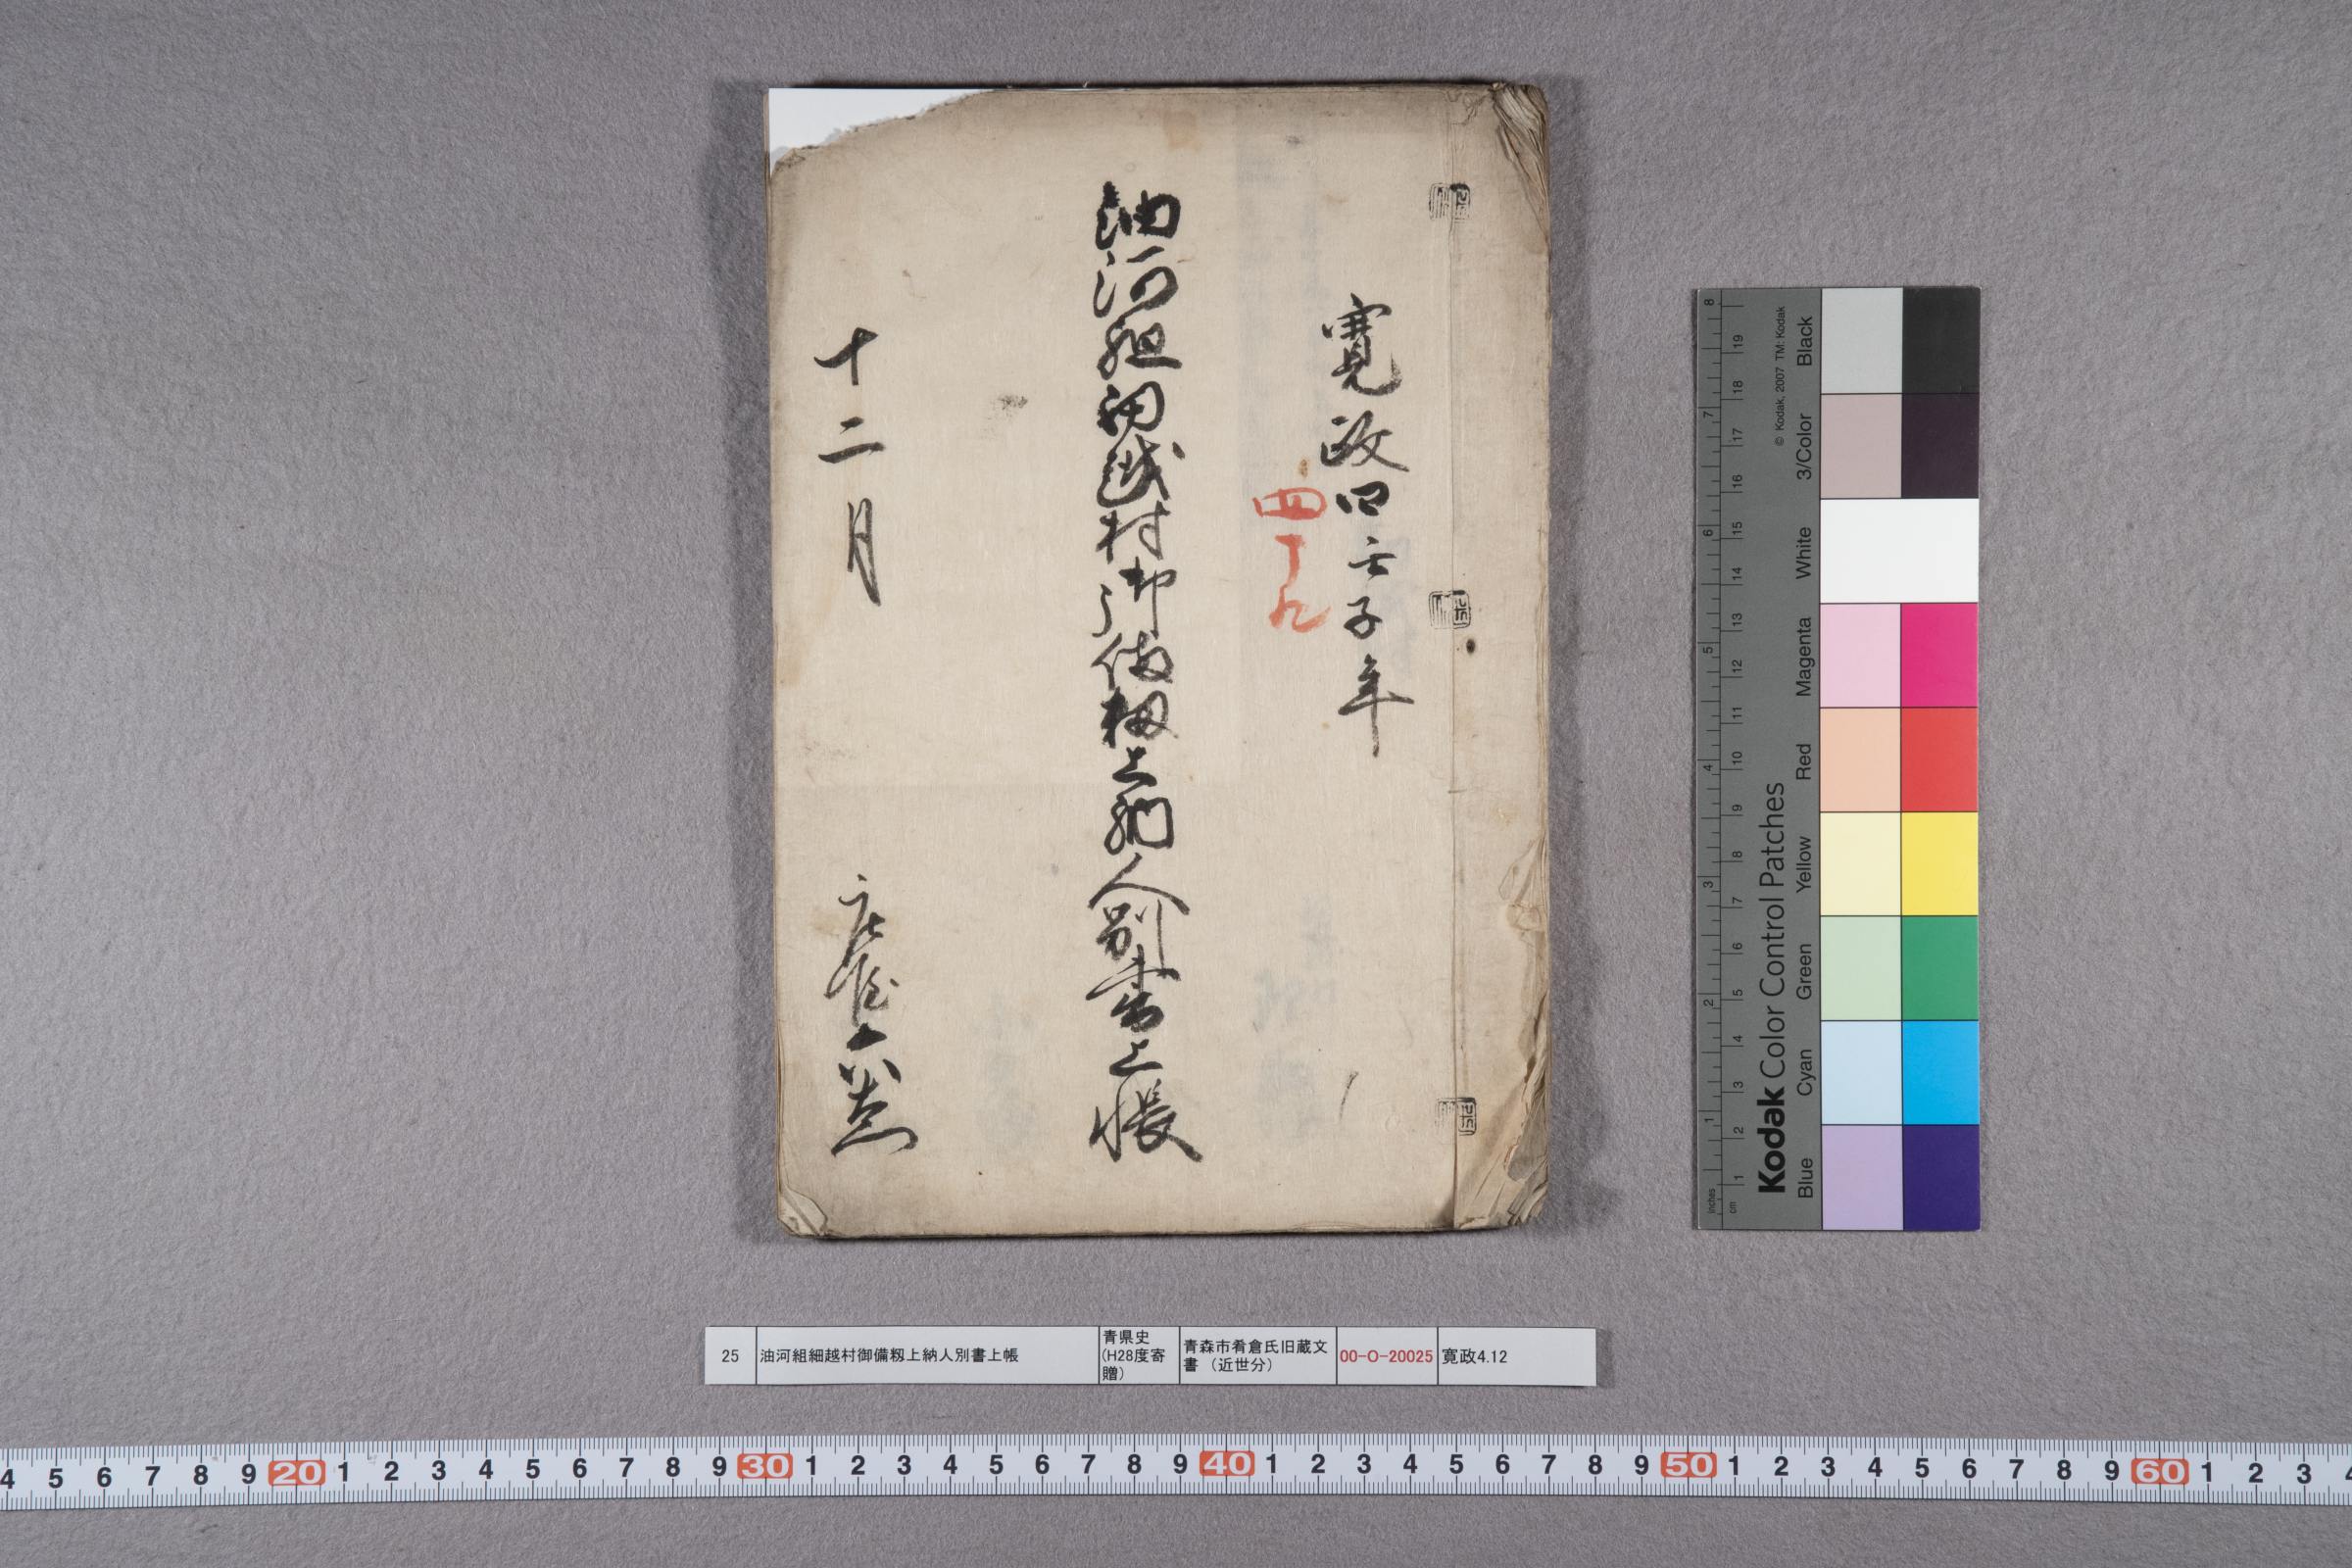 寛政四壬子年
四
油河組細越村御備籾上納人別書上帳
十二月
庄屋
25 油河組細越村御備籾上納人別書上帳 青県史(H28度寄贈) 青森市肴倉氏旧蔵文書(近世分) 00-O-20025 寛政4.12
Kodak Color Control Patches
© Kodak, 2007 TM: Kodak
Blue Cyan Green Yellow Red Magenta White 3/Color Black
inches 1 2 3 4 5 6 7 8
cm 1 2 3 4 5 6 7 8 9 10 11 12 13 14 15 16 17 18 19
4 5 6 7 8 9 20 1 2 3 4 5 6 7 8 9 30 1 2 3 4 5 6 7 8 9 40 1 2 3 4 5 6 7 8 9 50 1 2 3 4 5 6 7 8 9 60 1 2 3 4